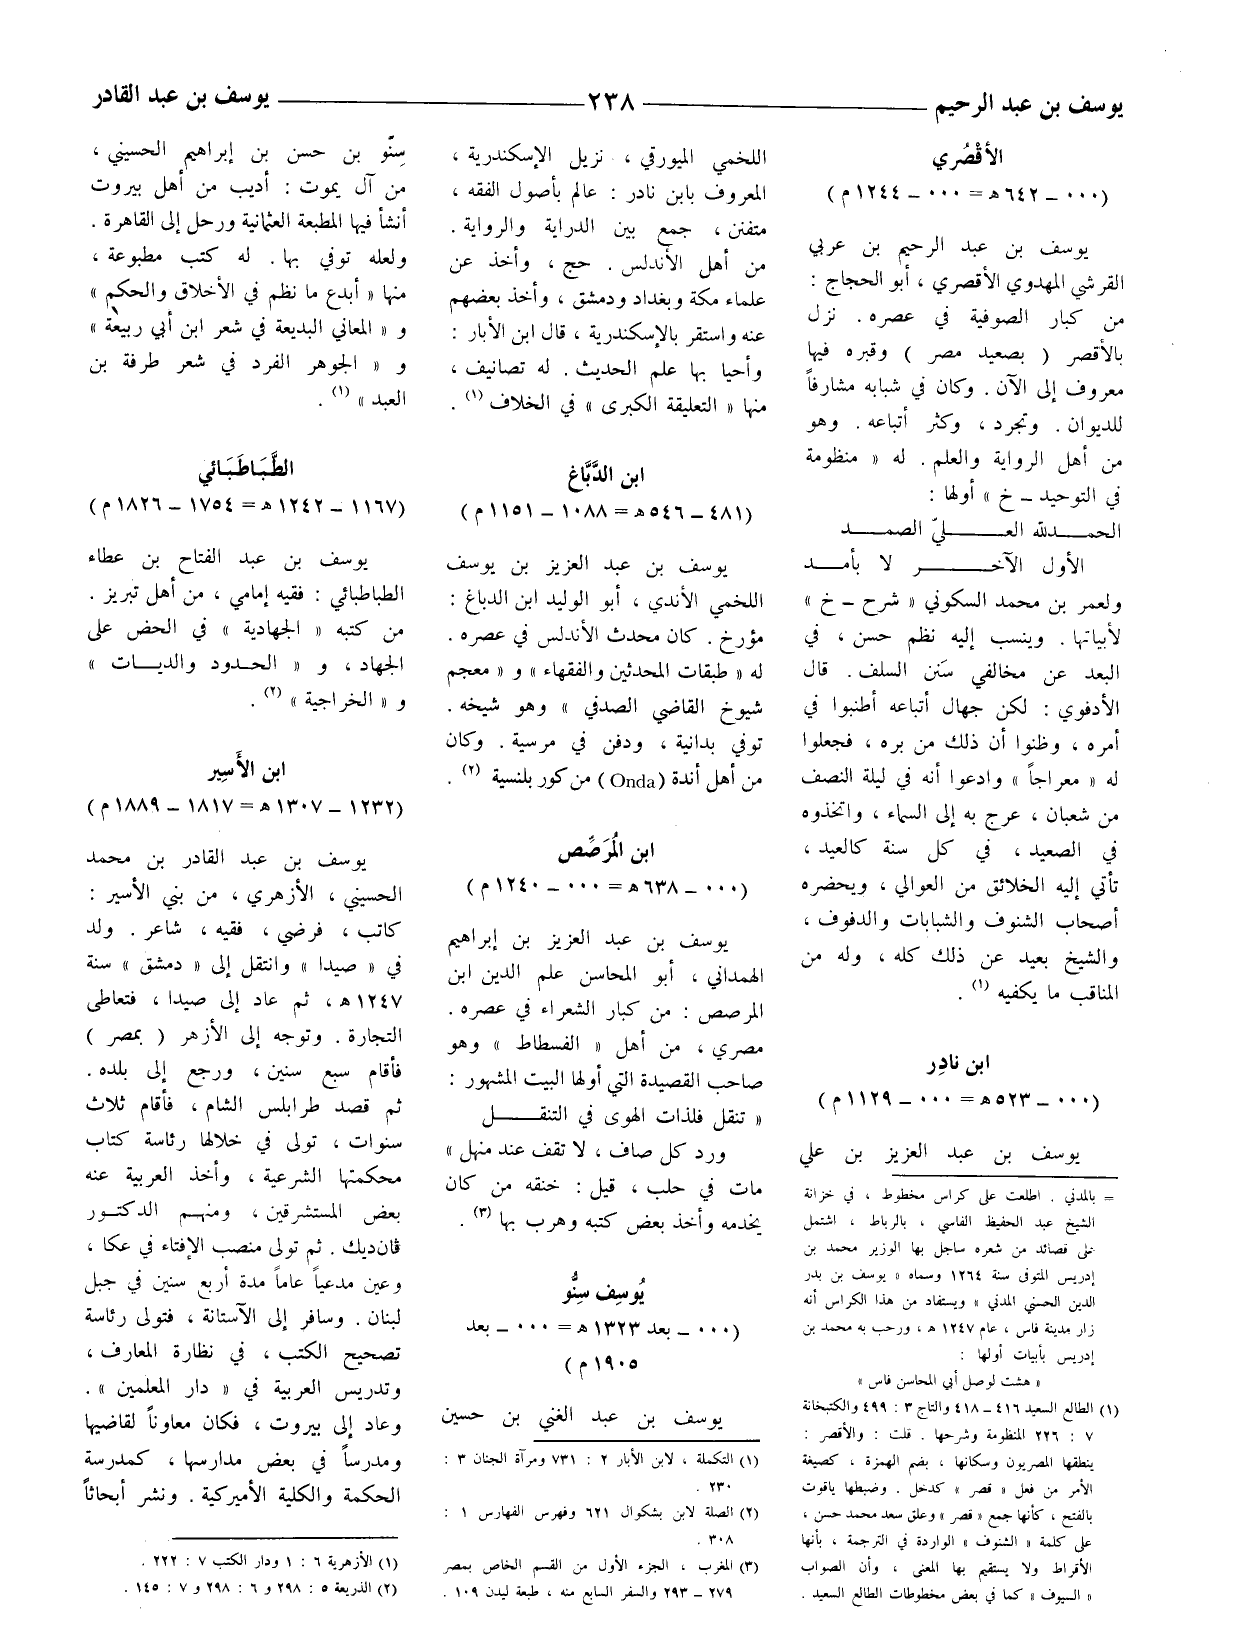 يوسف بن عبد الرحيم ـــــ ٢٣٨ ـــــ يوسف بن عبد القادر
الأَقْصُري
(٠٠٠ ــ ٦٤٢ هـ = ٠٠٠ ــ ١٢٤٤ م)
يوسف بن عبد الرحيم بن عربي
القرشي المهدوي الأقصري ، أبو الحجاج :
من كبار الصوفية في عصره . نزل
بالأقصر ( بصعيد مصر ) وقبره فيها
معروف إلى الآن . وكان في شبابه مشارفاً
للديوان . وتجرد ، وكثر أتباعه . وهو
من أهل الرواية والعلم . له « منظومة
في التوحيد ــ خ » أولها :
الحمــدلله العــليّ الصمــد
الأول الآخــر لا بأمــد
ولعمر بن محمد السكوني « شرح ــ خ »
لأبياتها . وينسب إليه نظم حسن ، في
البعد عن مخالفي سَنن السلف . قال
الأدفوي : لكن جهال أتباعه أطنبوا في
أمره ، وظنوا أن ذلك من بره ، فجعلوا
له « معراجاً » وادعوا أنه في ليلة النصف
من شعبان ، عرج به إلى السماء ، واتخذوه
في الصعيد ، في كل سنة كالعيد ،
تأتي إليه الخلائق من العوالي ، ويحضره
أصحاب الشنوف والشبابات والدفوف ،
والشيخ بعيد عن ذلك كله ، وله من
المناقب ما يكفيه (١) .
ابن نادِر
(٠٠٠ ــ ٥٢٣ هـ = ٠٠٠ ــ ١١٢٩ م)
يوسف بن عبد العزيز بن علي
= بالمدني . اطلعت على كراس مخطوط ، في خزانة
الشيخ عبد الحفيظ الفاسي ، بالرباط ، اشتمل
على قصائد من شعره ساجل بها الوزير محمد بن
إدريس المتوفى سنة ١٢٦٤ وسماه « يوسف بن بدر
الدين الحسني المدني » ويستفاد من هذا الكراس أنه
زار مدينة فاس ، عام ١٢٤٧ هـ ، ورحب به محمد بن
إدريس بأبيات أولها :
« هشت لوصل أبي المحاسن فاس »
(١) الطالع السعيد ٤١٦ ــ ٤١٨ والتاج ٣ : ٤٩٩ والكتبخانة
٧ : ٢٢٦ المنظومة وشرحها . قلت : والأقصر :
ينطقها المصريون وسكانها ، بضم الهمزة ، كصيغة
الأمر من فعل « قصر » كدخل . وضبطها ياقوت
بالفتح ، كأنها جمع « قصر » وعلق سعد محمد حسن ،
على كلمة « الشنوف » الواردة في الترجمة ، بأنها
الأقراط ولا يستقيم بها المعنى ، وأن الصواب
« السيوف » كما في بعض مخطوطات الطالع السعيد .
اللخمي الميورقي ، نزيل الإسكندرية ،
المعروف بابن نادر : عالم بأصول الفقه ،
متفنن ، جمع بين الدراية والرواية .
من أهل الأندلس . حج ، وأخذ عن
علماء مكة وبغداد ودمشق ، وأخذ بعضهم
عنه واستقر بالإسكندرية ، قال ابن الأبار :
وأحيا بها علم الحديث . له تصانيف ،
منها « التعليقة الكبرى » في الخلاف (١) .
ابن الدَّبَّاغ
(٤٨١ ــ ٥٤٦ هـ = ١٠٨٨ ــ ١١٥١ م)
يوسف بن عبد العزيز بن يوسف
اللخمي الأندي ، أبو الوليد ابن الدباغ :
مؤرخ . كان محدث الأندلس في عصره .
له « طبقات المحدثين والفقهاء » و « معجم
شيوخ القاضي الصدفي » وهو شيخه .
توفي بدانية ، ودفن في مرسية . وكان
من أهل أندة (Onda) من كور بلنسية (٢) .
ابن المُرَصَّص
(٠٠٠ ــ ٦٣٨ هـ = ٠٠٠ ــ ١٢٤٠ م)
يوسف بن عبد العزيز بن إبراهيم
الهمداني ، أبو المحاسن علم الدين ابن
المرصص : من كبار الشعراء في عصره .
مصري ، من أهل « الفسطاط » وهو
صاحب القصيدة التي أولها البيت المشهور :
« تنقل فلذات الهوى في التنقــل
ورد كل صاف ، لا تقف عند منهل »
مات في حلب ، قيل : خنقه من كان
يخدمه وأخذ بعض كتبه وهرب بها (٣) .
يُوسِف سِنُّو
(٠٠٠ ــ بعد ١٣٢٣ هـ = ٠٠٠ ــ بعد
١٩٠٥ م)
يوسف بن عبد الغني بن حسين
(١) التكملة ، لابن الأبار ٢ : ٧٣١ ومرآة الجنان ٣ :
٢٣٠ .
(٢) الصلة لابن بشكوال ٦٢١ وفهرس الفهارس ١ :
٣٠٨ .
(٣) المغرب ، الجزء الأول من القسم الخاص بمصر
٢٧٩ ــ ٢٩٣ والسفر السابع منه ، طبعة ليدن ١٠٩ .
سِنّو بن حسن بن إبراهيم الحسيني ،
من آل يموت : أديب من أهل بيروت
أنشأ فيها المطبعة العثمانية ورحل إلى القاهرة .
ولعله توفي بها . له كتب مطبوعة ،
منها « أبدع ما نظم في الأخلاق والحكم »
و « المعاني البديعة في شعر ابن أبي ربيعة »
و « الجوهر الفرد في شعر طرفة بن
العبد » (١) .
الطَّبَاطَبَائي
(١١٦٧ ــ ١٢٤٢ هـ = ١٧٥٤ ــ ١٨٢٦ م)
يوسف بن عبد الفتاح بن عطاء
الطباطبائي : فقيه إمامي ، من أهل تبريز .
من كتبه « الجهادية » في الحض على
الجهاد ، و « الحــدود والديــات »
و « الخراجية » (٢) .
ابن الأَسِير
(١٢٣٢ ــ ١٣٠٧ هـ = ١٨١٧ ــ ١٨٨٩ م)
يوسف بن عبد القادر بن محمد
الحسيني ، الأزهري ، من بني الأسير :
كاتب ، فرضي ، فقيه ، شاعر . ولد
في « صيدا » وانتقل إلى « دمشق » سنة
١٢٤٧ هـ ، ثم عاد إلى صيدا ، فتعاطى
التجارة . وتوجه إلى الأزهر ( بمصر )
فأقام سبع سنين ، ورجع إلى بلده .
ثم قصد طرابلس الشام ، فأقام ثلاث
سنوات ، تولى في خلالها رئاسة كتاب
محكمتها الشرعية ، وأخذ العربية عنه
بعض المستشرقين ، ومنهم الدكتــور
ڤانديك . ثم تولى منصب الإفتاء في عكا ،
وعين مدعياً عاماً مدة أربع سنين في جبل
لبنان . وسافر إلى الآستانة ، فتولى رئاسة
تصحيح الكتب ، في نظارة المعارف ،
وتدريس العربية في « دار المعلمين » .
وعاد إلى بيروت ، فكان معاوناً لقاضيها
ومدرساً في بعض مدارسها ، كمدرسة
الحكمة والكلية الأميركية . ونشر أبحاثاً
(١) الأزهرية ٦ : ١ ودار الكتب ٧ : ٢٢٢ .
(٢) الذريعة ٥ : ٢٩٨ و ٦ : ٢٩٨ و ٧ : ١٤٥ .